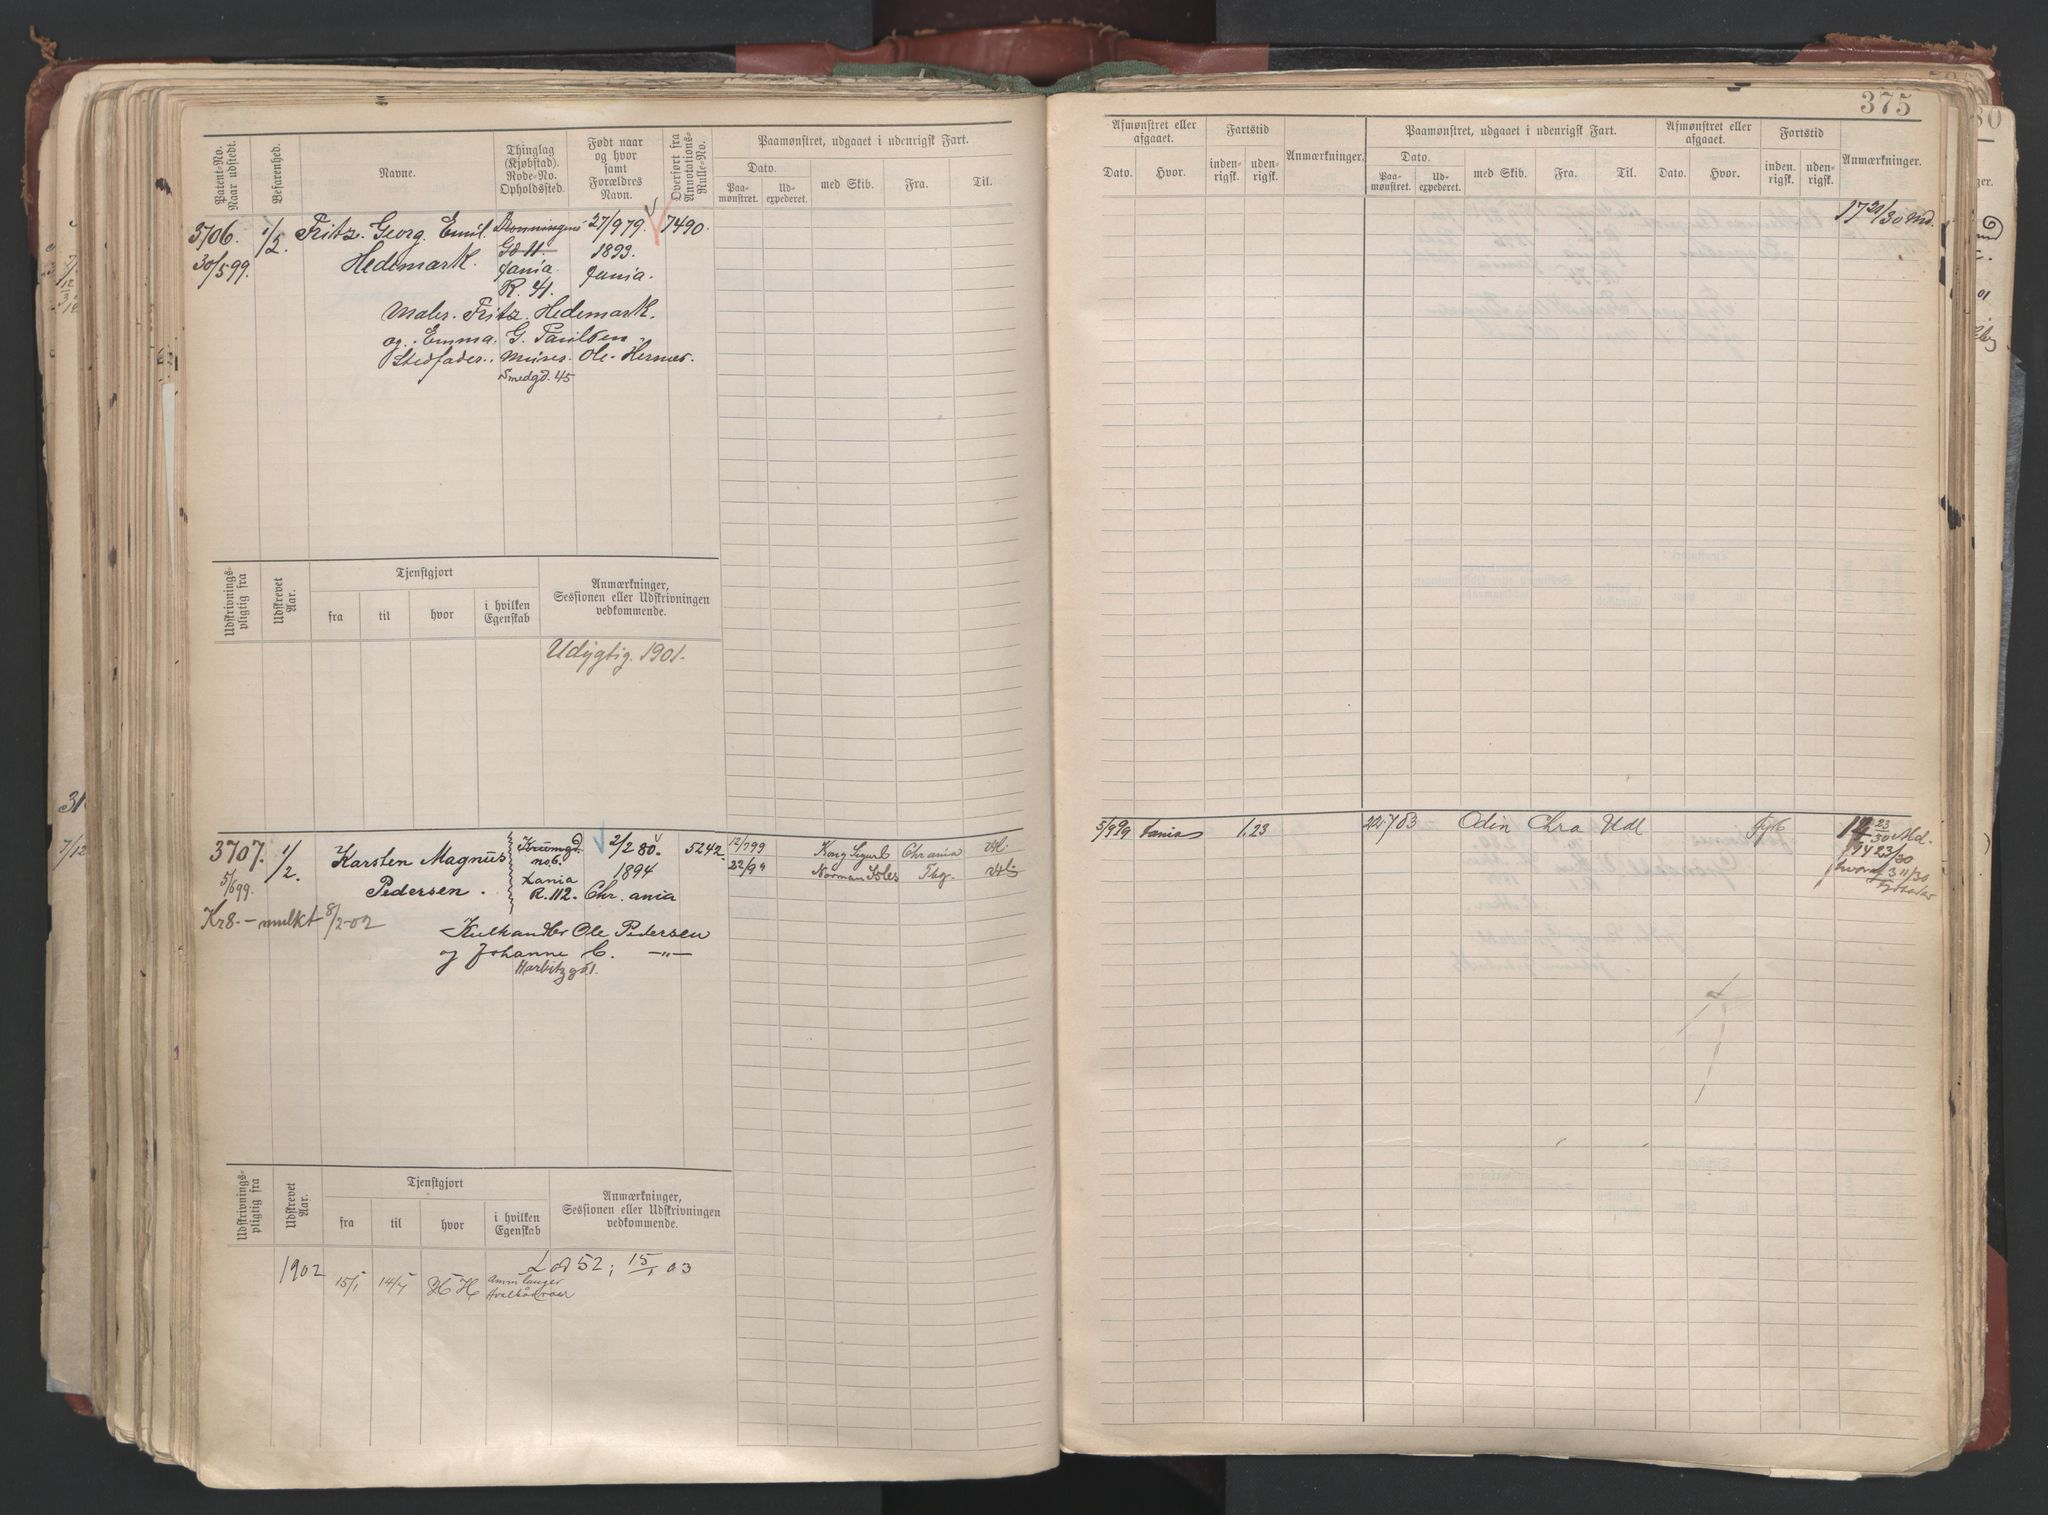 375
Patent-No. Naar udstedt.
Befarenhed.
Navne.
Thinglag (Kjøbstad). Rode-No. Opholdssted.
Født naar og hvor samt Forældres Navn.
Overført fra Annotations-Rulle-No.
Paamønstret, udgaaet i udenrigsk Fart.
Dato.
Paamønstret.
Udexpederet.
med Skib.
Fra.
Til.
Afmønstret eller afgaaet.
Dato.
Hvor.
Fartstid
indenrigsk.
udenrigsk.
Anmærkninger.
Paamønstret, udgaaet i udenrigsk Fart.
Dato.
Paamønstret.
Udexpederet.
med Skib.
Fra.
Til.
Afmønstret eller afgaaet.
Dato.
Hvor.
Fartstid
inden.rigsk.
udenrigsk.
Anmærkninger.
3706. 1/2 Fritz. Georg. Emil. 27/9 79. 7490.
30/5 99. Hedemark. Gd 11 1893.
R. 41.
Maler. Fritz. Hedemark.
og. Emma. G. Paulsen.
Stedfader. Murer. Ole
Smedgd. 45
17 21/30 Md.
Udskrivningspligtig fra
Udskrevet Aar.
Tjenstgjort
fra
til
hvor
i hvilken Egenskab
Anmærkninger, Sessionen eller Udskrivningen vedkommende.
Udygtig. 1901.
3707. 1/2 Karsten Magnus Pedersen. 2/2 80. 5242.
5/6 99. no 6. 1894
R. 112. Chr. ania
Kr 8.- mulkt 8/2-02
Kulhandler Ole Pedersen
og Johanne C. —"—
Harbitzgd 1.
12/7 99 Kong Sigurd Chrania
22/9 Norman Isles Tbg.
5/9 99 1.23
22/7 03 Odin Chra Udl
14 23/30 Md.
Udskrivningspligtig fra
Udskrevet Aar.
Tjenstgjort
fra
til
hvor
i hvilken Egenskab
Anmærkninger, Sessionen eller Udskrivningen vedkommende.
Lod 52; 15/1 03
1902 15/1 14/7 H H